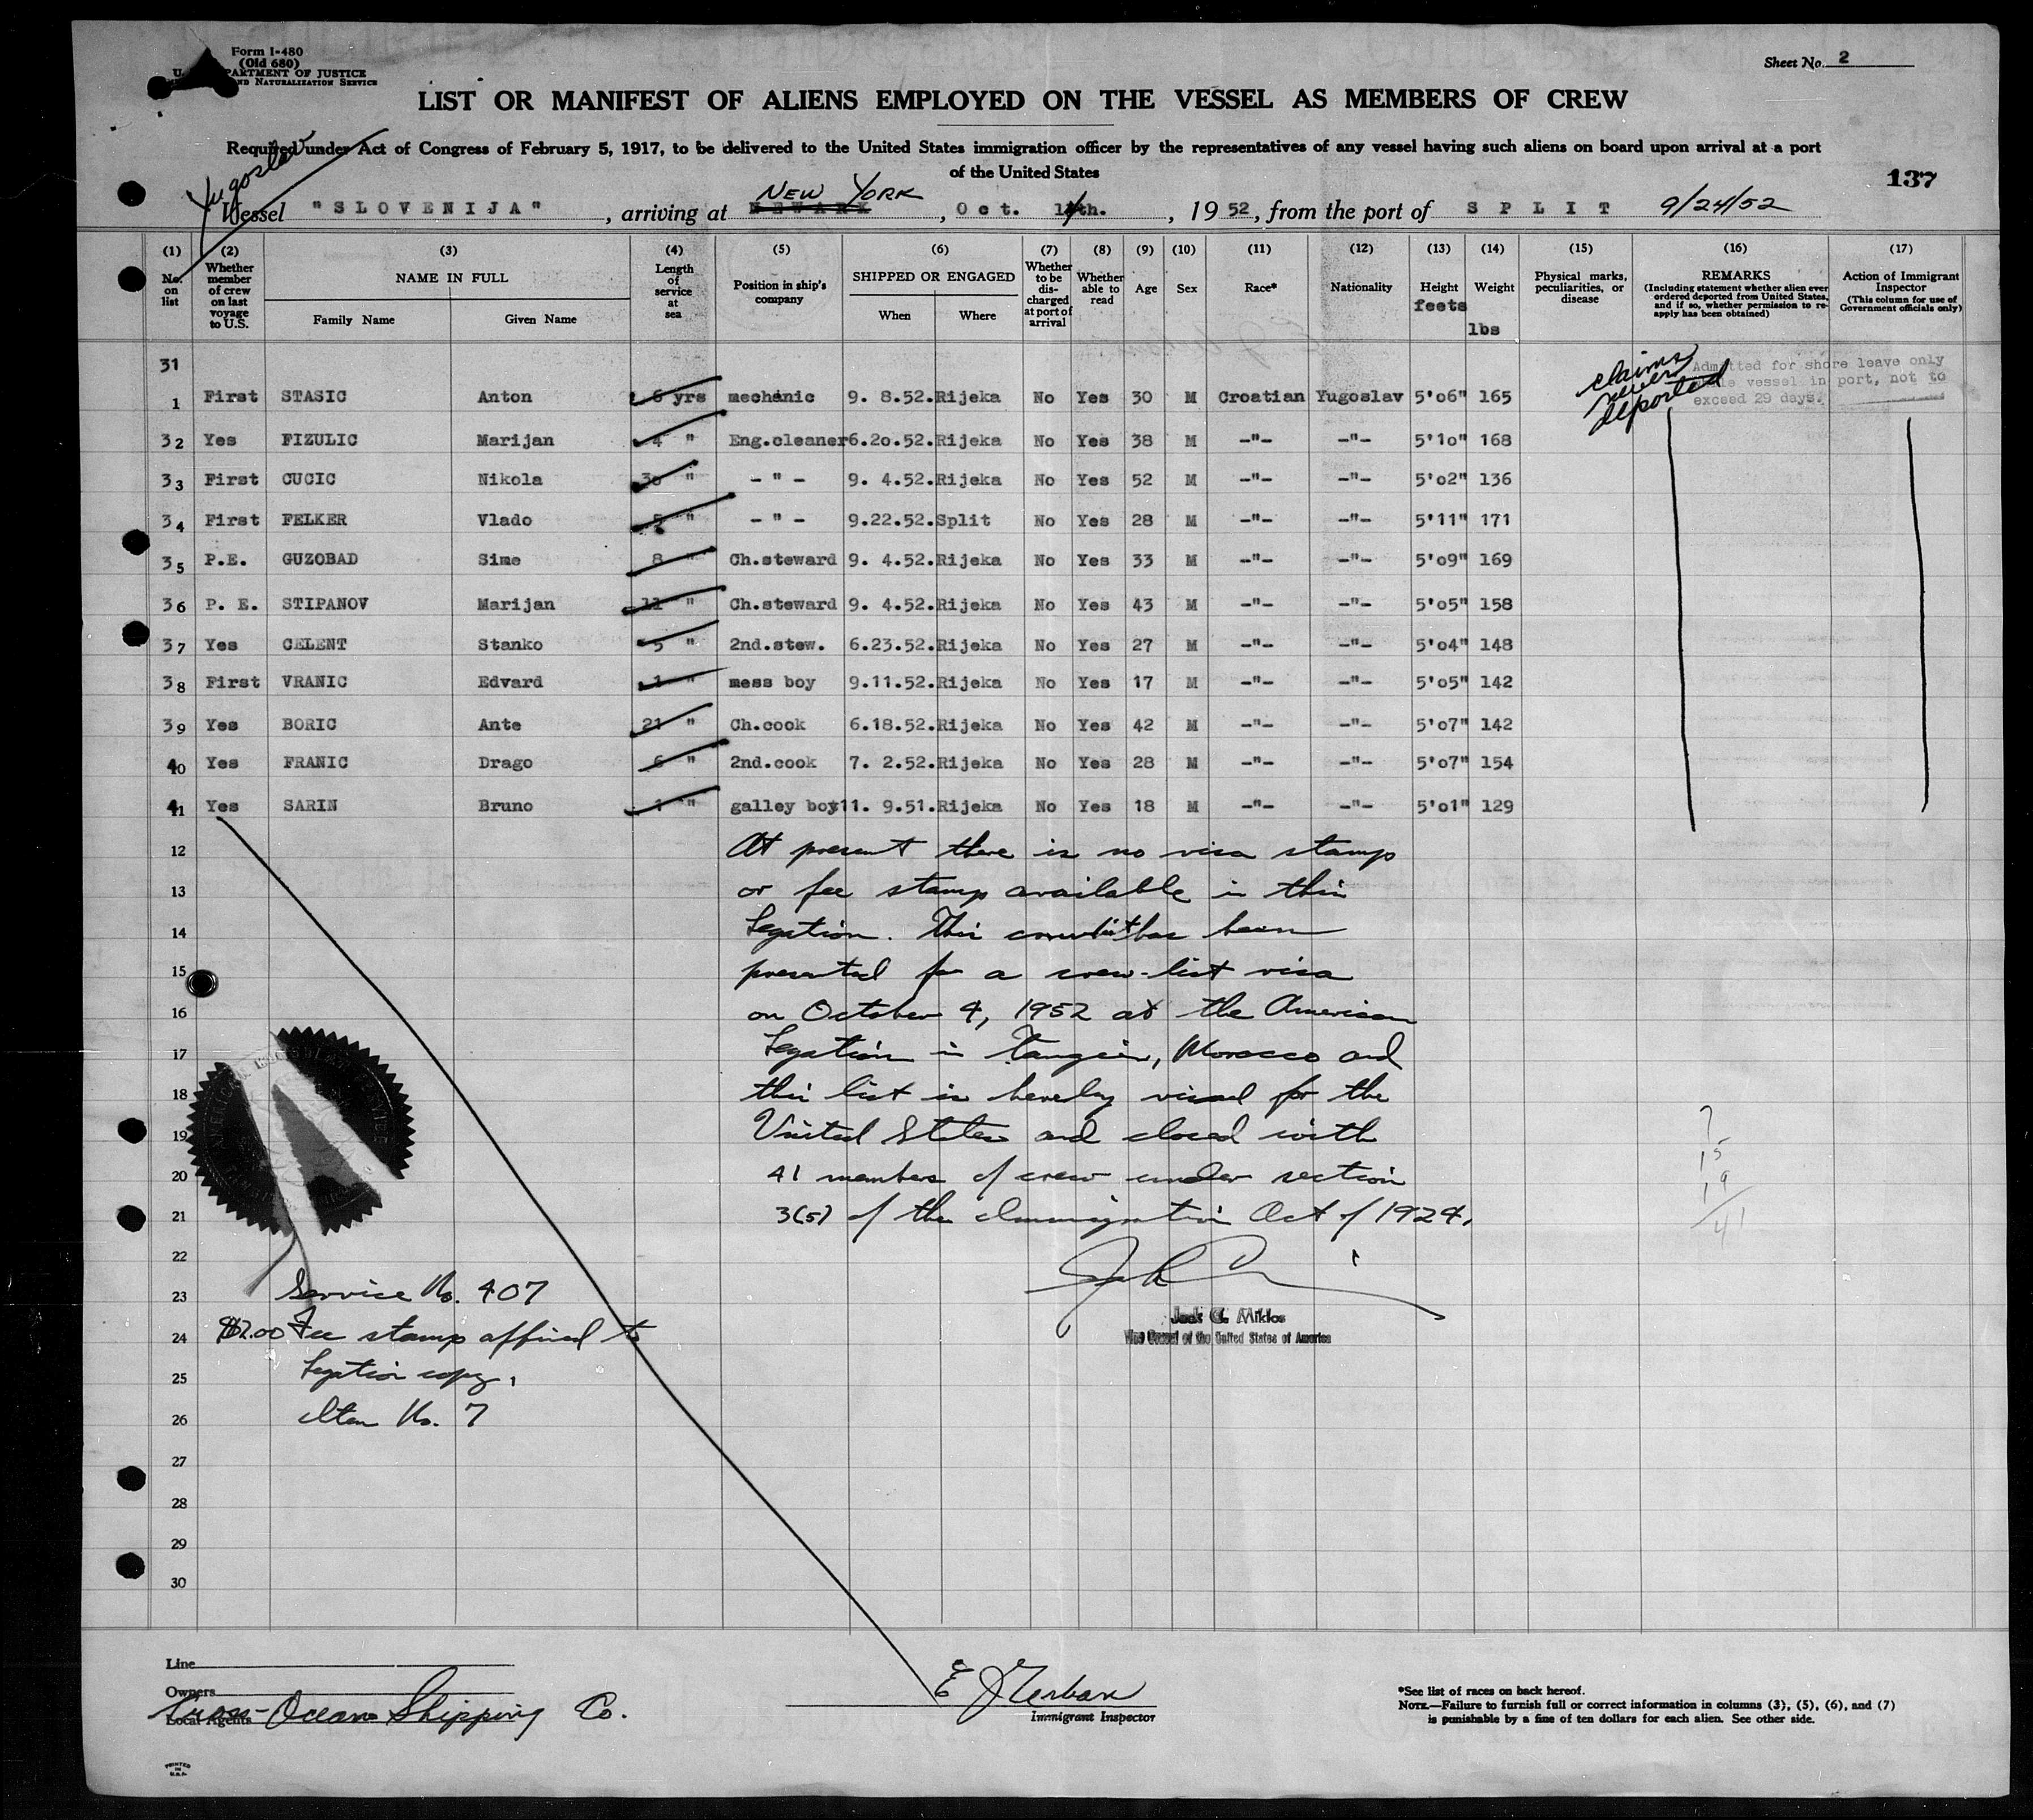 Form I-480
(Old 680)
U. DEPARTMENT OF JUSTICE
AND NATURALIZATION SERVICE
Sheet No. 2
LIST OR MANIFEST OF ALIENS EMPLOYED ON THE VESSEL AS MEMBERS OF CREW
Required under Act of Congress of February 5, 1917, to be delivered to the United States immigration officer by the representatives of any vessel having such aliens on board upon arrival at a port
of the United States
137
Yugoslav
NEW YORK
Vessel "SLOVENIJA", arriving at NEWARK, Oct. 14th., 1952, from the port of SPLIT 9/24/52
(1) No. on list
(2) Whether member of crew on last voyage to U.S.
(3) NAME IN FULL Family Name Given Name
(4) Length of service at sea
(5) Position in ship's company
(6) SHIPPED OR ENGAGED When Where
(7) Whether to be discharged at port of arrival
(8) Whether able to read
(9) Age
(10) Sex
(11) Race*
(12) Nationality
(13) Height feets
(14) Weight lbs
(15) Physical marks, peculiarities, or disease
(16) REMARKS (Including statement whether alien ever ordered deported from United States, and if so, whether permission to reapply has been obtained)
(17) Action of Immigrant Inspector (This column for use of Government officials only)
claims never deported
Admitted for shore leave only
while vessel in port, not to
exceed 29 days.
31
1 First STASIC Anton 6 yrs mechanic 9. 8.52. Rijeka No Yes 30 M Croatian Yugoslav 5'o6" 165
32 Yes FIZULIC Marijan 4 " Eng.cleaner 6.2o.52. Rijeka No Yes 38 M -"- -"- 5'1o" 168
33 First CUCIC Nikola 3o " - " - 9. 4.52. Rijeka No Yes 52 M -"- -"- 5'o2" 136
34 First FELKER Vlado 5 " - " - 9.22.52. Split No Yes 28 M -"- -"- 5'11" 171
35 P.E. GUZOBAD Sime 8 " Ch.steward 9. 4.52. Rijeka No Yes 33 M -"- -"- 5'o9" 169
36 P. E. STIPANOV Marijan 11 " Ch.steward 9. 4.52. Rijeka No Yes 43 M -"- -"- 5'o5" 158
37 Yes CELENT Stanko 5 " 2nd.stew. 6.23.52. Rijeka No Yes 27 M -"- -"- 5'o4" 148
38 First VRANIC Edvard 1 " mess boy 9.11.52. Rijeka No Yes 17 M -"- -"- 5'o5" 142
39 Yes BORIC Ante 21 " Ch.cook 6.18.52. Rijeka No Yes 42 M -"- -"- 5'o7" 142
40 Yes FRANIC Drago 6 " 2nd.cook 7. 2.52. Rijeka No Yes 28 M -"- -"- 5'o7" 154
41 Yes SARIN Bruno 1 " galley boy 11. 9.51. Rijeka No Yes 18 M -"- -"- 5'o1" 129
12 At present there is no visa stamp
13 or fee stamp available in this
14 Legation. This crew list has been
15 presented for a crew-list visa
16 on October 4, 1952 at the American
17 Legation in Tangier, Morocco and
18 this list is hereby visaed for the
19 United States and closed with
20 41 members of crew under section
21 3(5) of the Immigration Act of 1924.
7
15
19
41
22
23 Service No. 407
Jack G. Miklos
Vice Consul of the United States of America
24 $2.00 Fee stamp affixed to
25 Legation copy.
26 Item No. 7
27
28
29
30
Line
Owners
Local Agents
Cross-Ocean Shipping Co.
Immigrant Inspector
*See list of races on back hereof.
NOTE.—Failure to furnish full or correct information in columns (3), (5), (6), and (7)
is punishable by a fine of ten dollars for each alien. See other side.
PRINTED
IN
U.S.A.